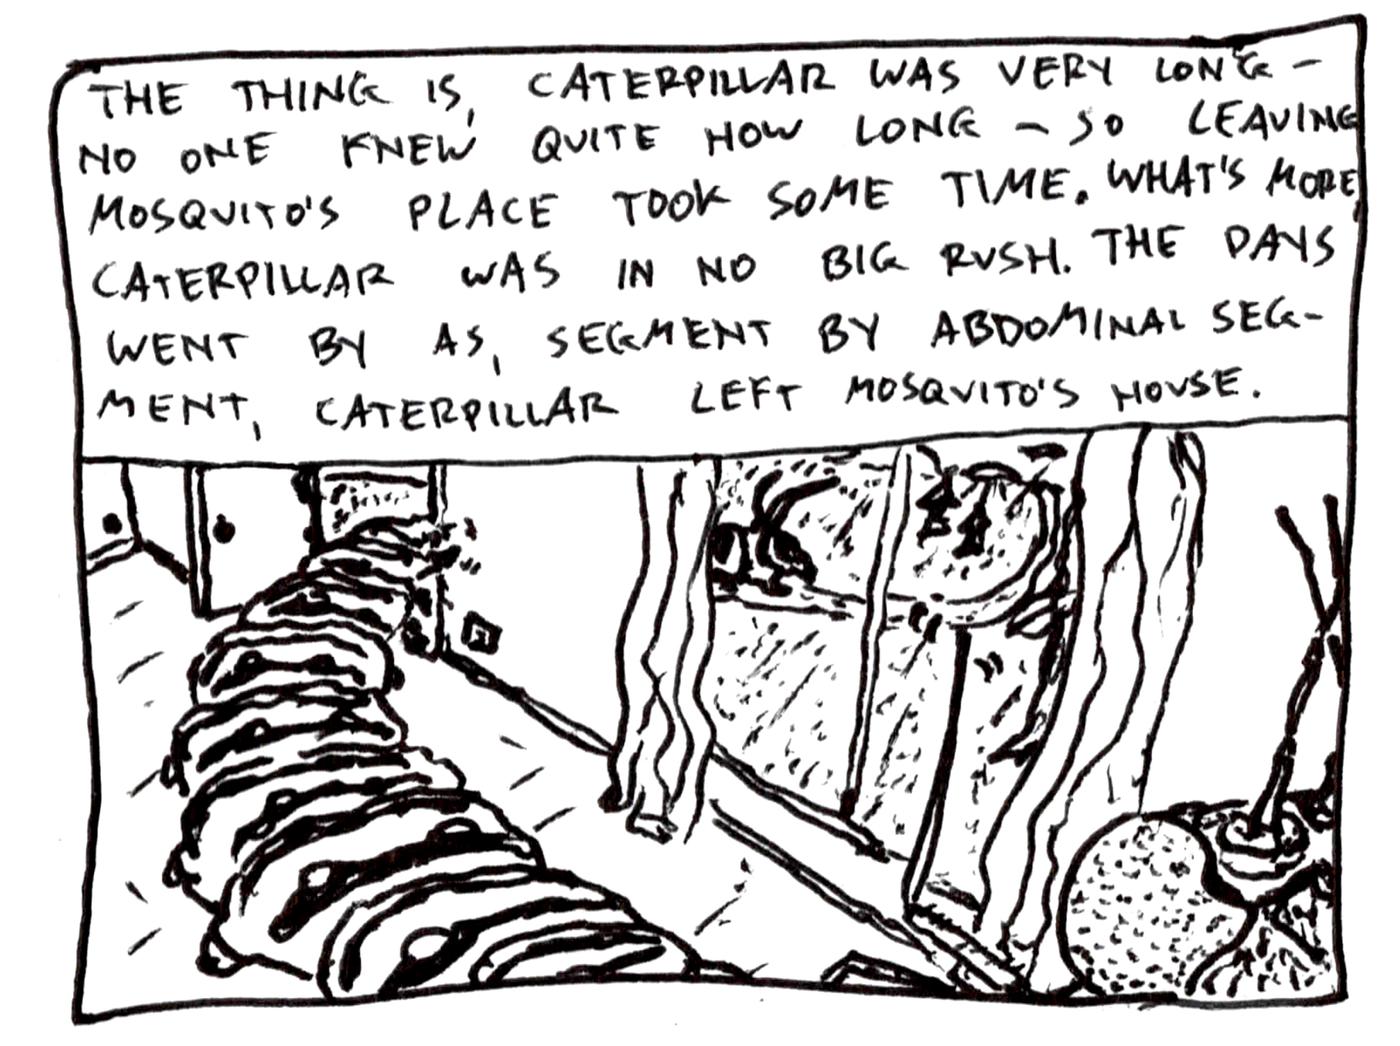 THE THING IS, CATERPILLAR WAS VERY LONG —
NO ONE KNEW QUITE HOW LONG — SO LEAVING
MOSQUITO'S PLACE TOOK SOME TIME. WHAT'S MORE,
CATERPILLAR WAS IN NO BIG RUSH. THE DAYS
WENT BY AS, SEGMENT BY ABDOMINAL SEG-
MENT, CATERPILLAR LEFT MOSQUITO'S HOUSE.